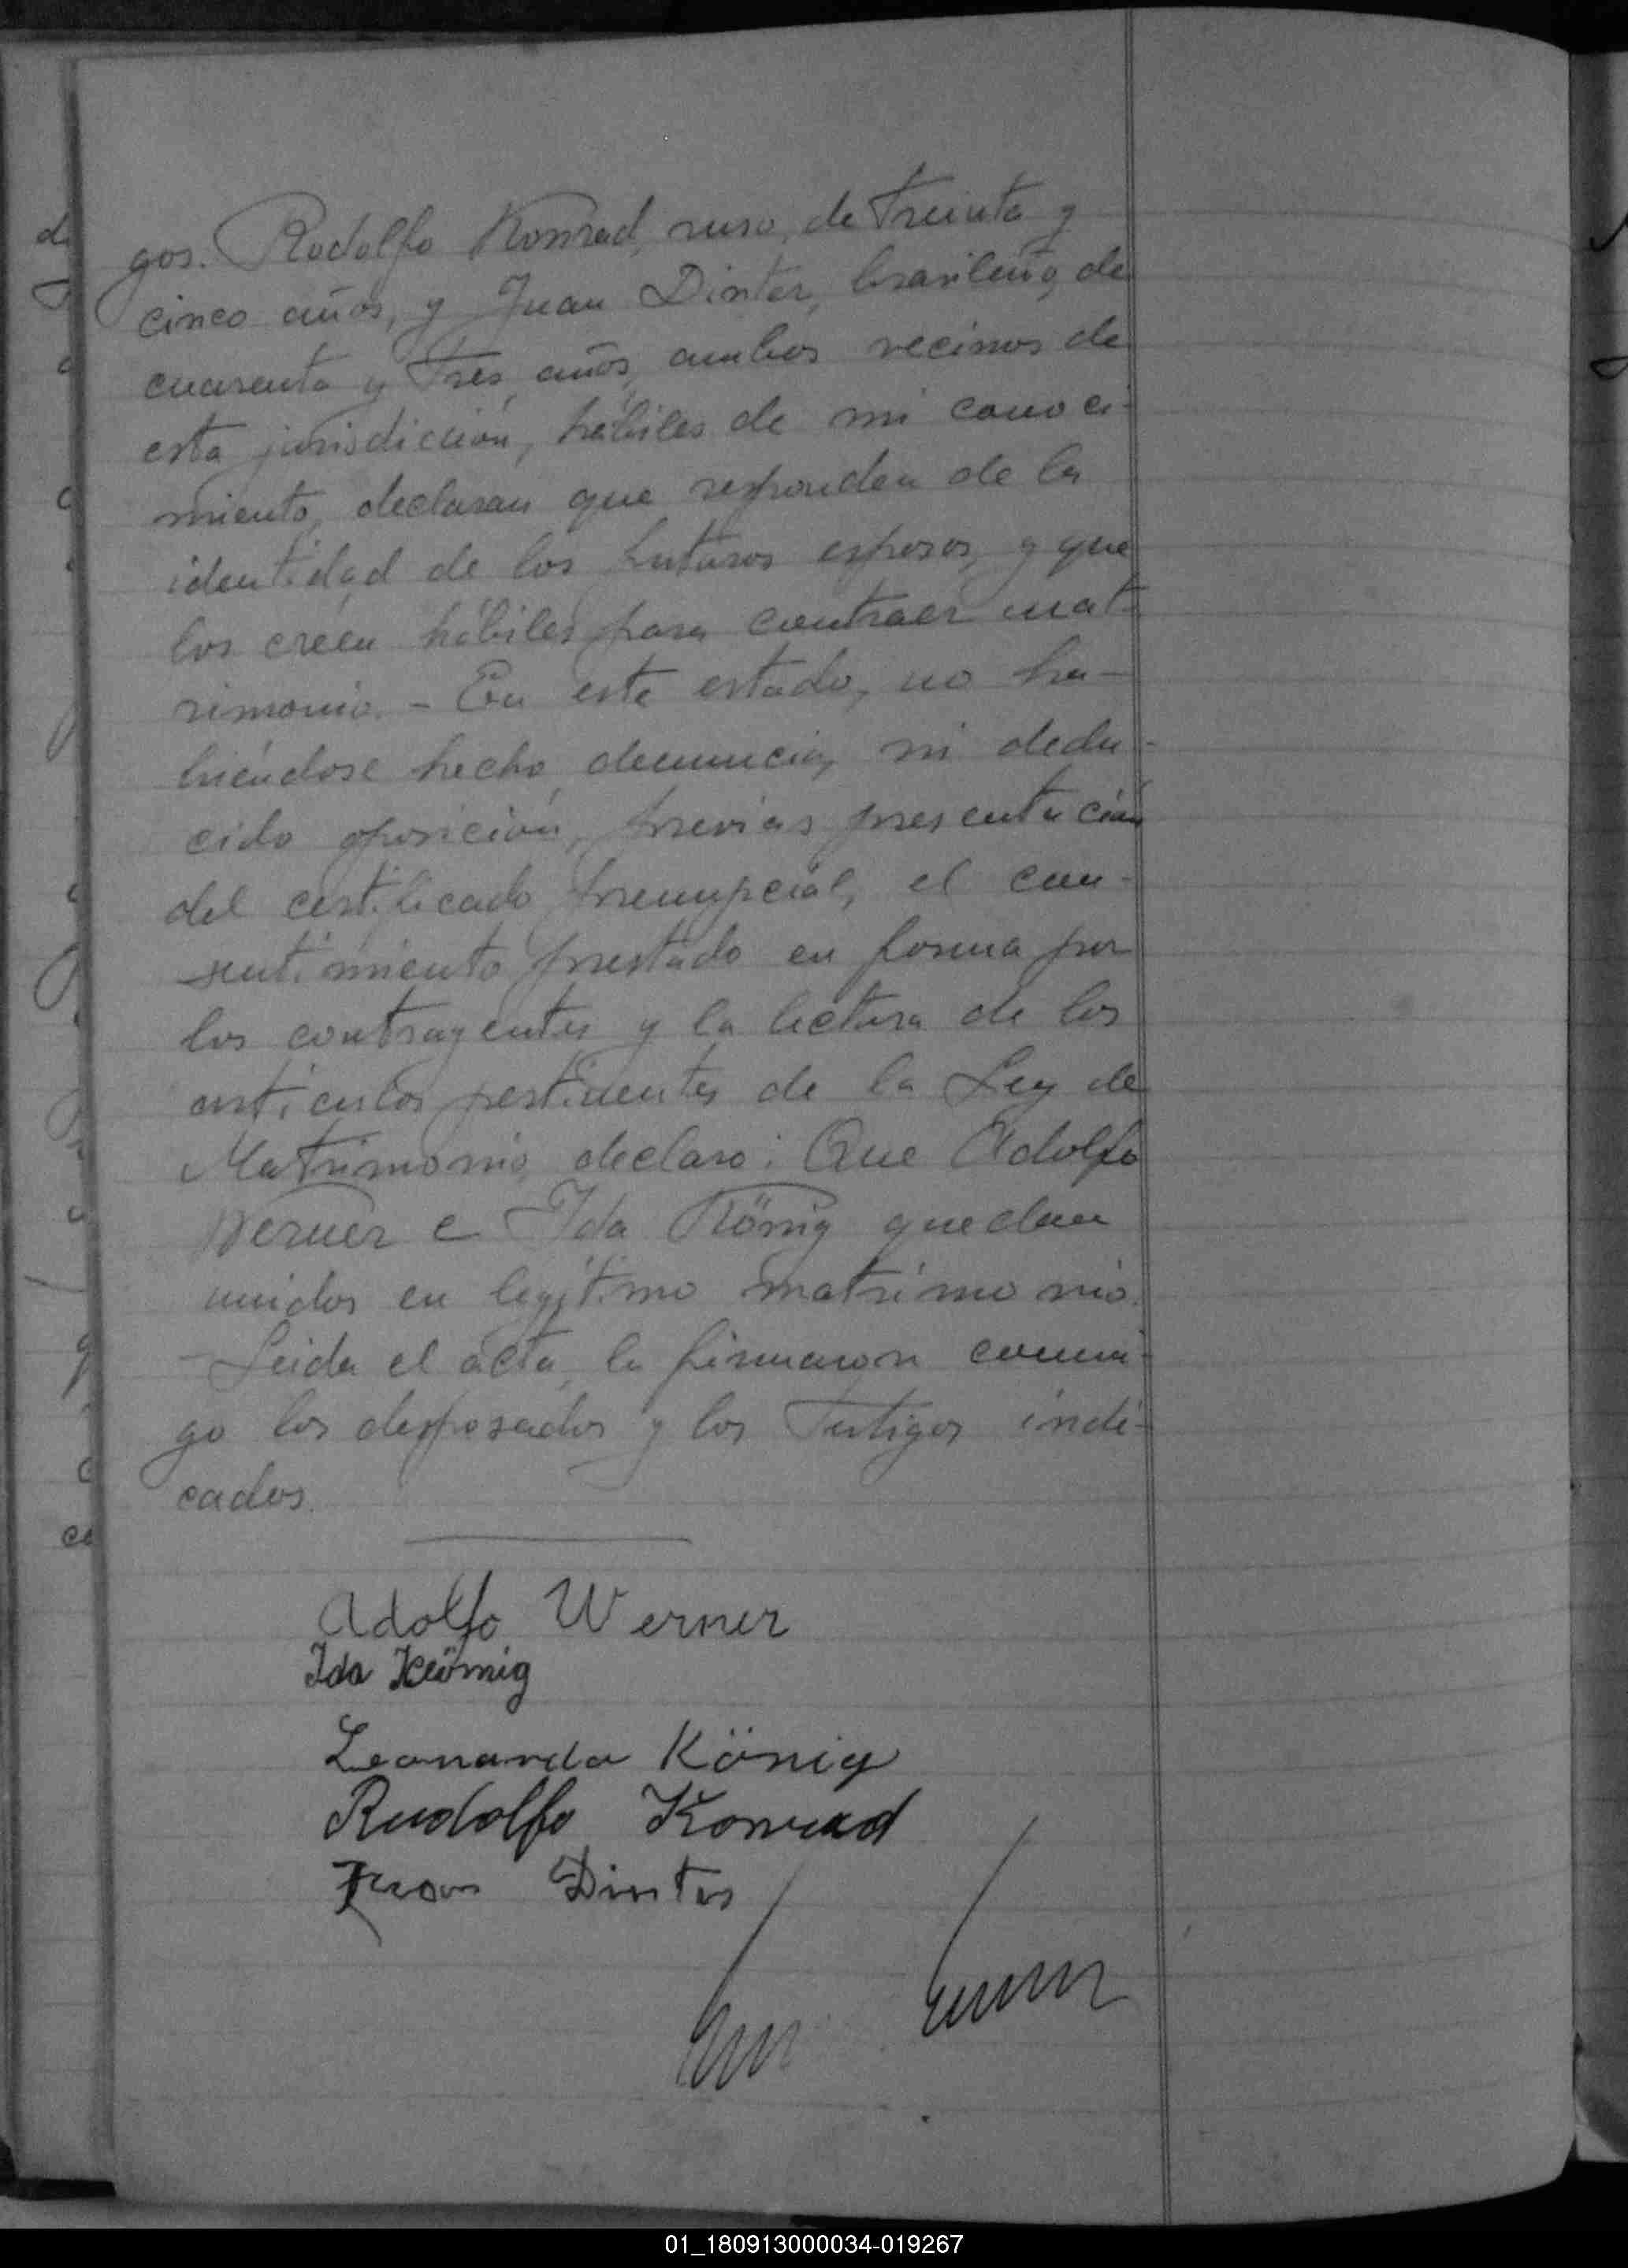 gos. Rodolfo Konrad, ruso, de treinta y
cinco años, y Juan Dinter, brasileño, de
cuarenta y tres años, ambos vecinos de
esta jurisdicción, hábiles de mi conoci-
miento, declaran que responden de la
identidad de los futuros esposos, y que
los créen hábiles para contraer mat-
rimonio. - En este estado, no ha-
biéndose hecho denuncia, ni dedu-
cido oposición, previas presentación
del certificado prenupcial, el con-
sentimiento prestado en forma por
los contrayentes y la lectura de los
artículos pertinentes de la Ley de
Matrimonio, declaro: Que Adolfo
Werner e Ida König quedan
unidos en legítimo matrimonio.
- Leida el acta, la firmaron conmi-
go los desposados y los testigos indi-
cados.
Adolfo Werner
Ida König
Leonardo König
Rudolfo Konrad
Juan Dinter
01_180913000034-019267